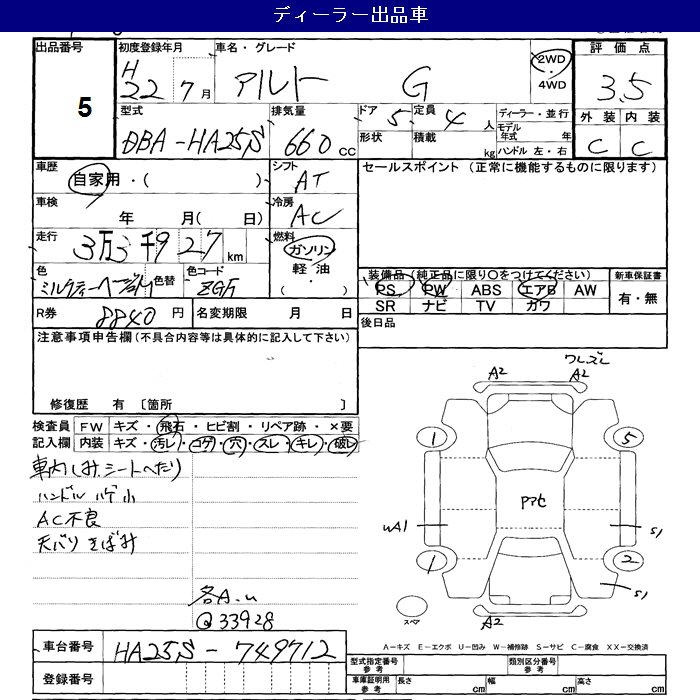 ディーラー出品車
出品番号 初度登録年月 車名・グレード 評価点
5 H 22年 7月 アルト G 2WD・4WD 3.5
型式 排気量 ドア 5 定員 4人 ディーラー・並行 外装 内装
DBA-HA25S 660cc 形状 積載 kg モデル年式 年 C C
ハンドル 左・右
車歴 シフト セールスポイント (正常に機能するものに限ります)
自家用・( ) AT
車検 冷房
年 月( 日) AC
走行 燃料
3万3千927km ガソリン
色 色替 色コード 軽油 装備品(純正品に限り○をつけてください) 新車保証書
ZGF ・( ) PS PW ABS エアB AW 有・無
SR ナビ TV カワ
R券 8840円 名変期限 月 日 後日品
注意事項申告欄(不具合内容等は具体的に記入して下さい)
ワレ、ズレ
A2 A2
修復歴 有 〔箇所 〕
検査員 FW キズ・飛石・ヒビ割・リペア跡・×要
記入欄 内装 キズ・汚レ・コゲ・穴・スレ・キレ・破レ
1 5
車内しみ、シートへたり
ハンドル ハゲ小
AC不良
天バリ きばみ
Pアセ
UA1 S1
1 2
S1
スペア
A2
各A.u
@33928
車台番号 HA25S-749712
A-キズ E-エクボ U-凹み W-補修跡 S-サビ C-腐食 XX-交換済
登録番号
型式指定番号 参考 類別区分番号 参考
車庫証明用 参考 長さ cm 幅 cm 高さ cm